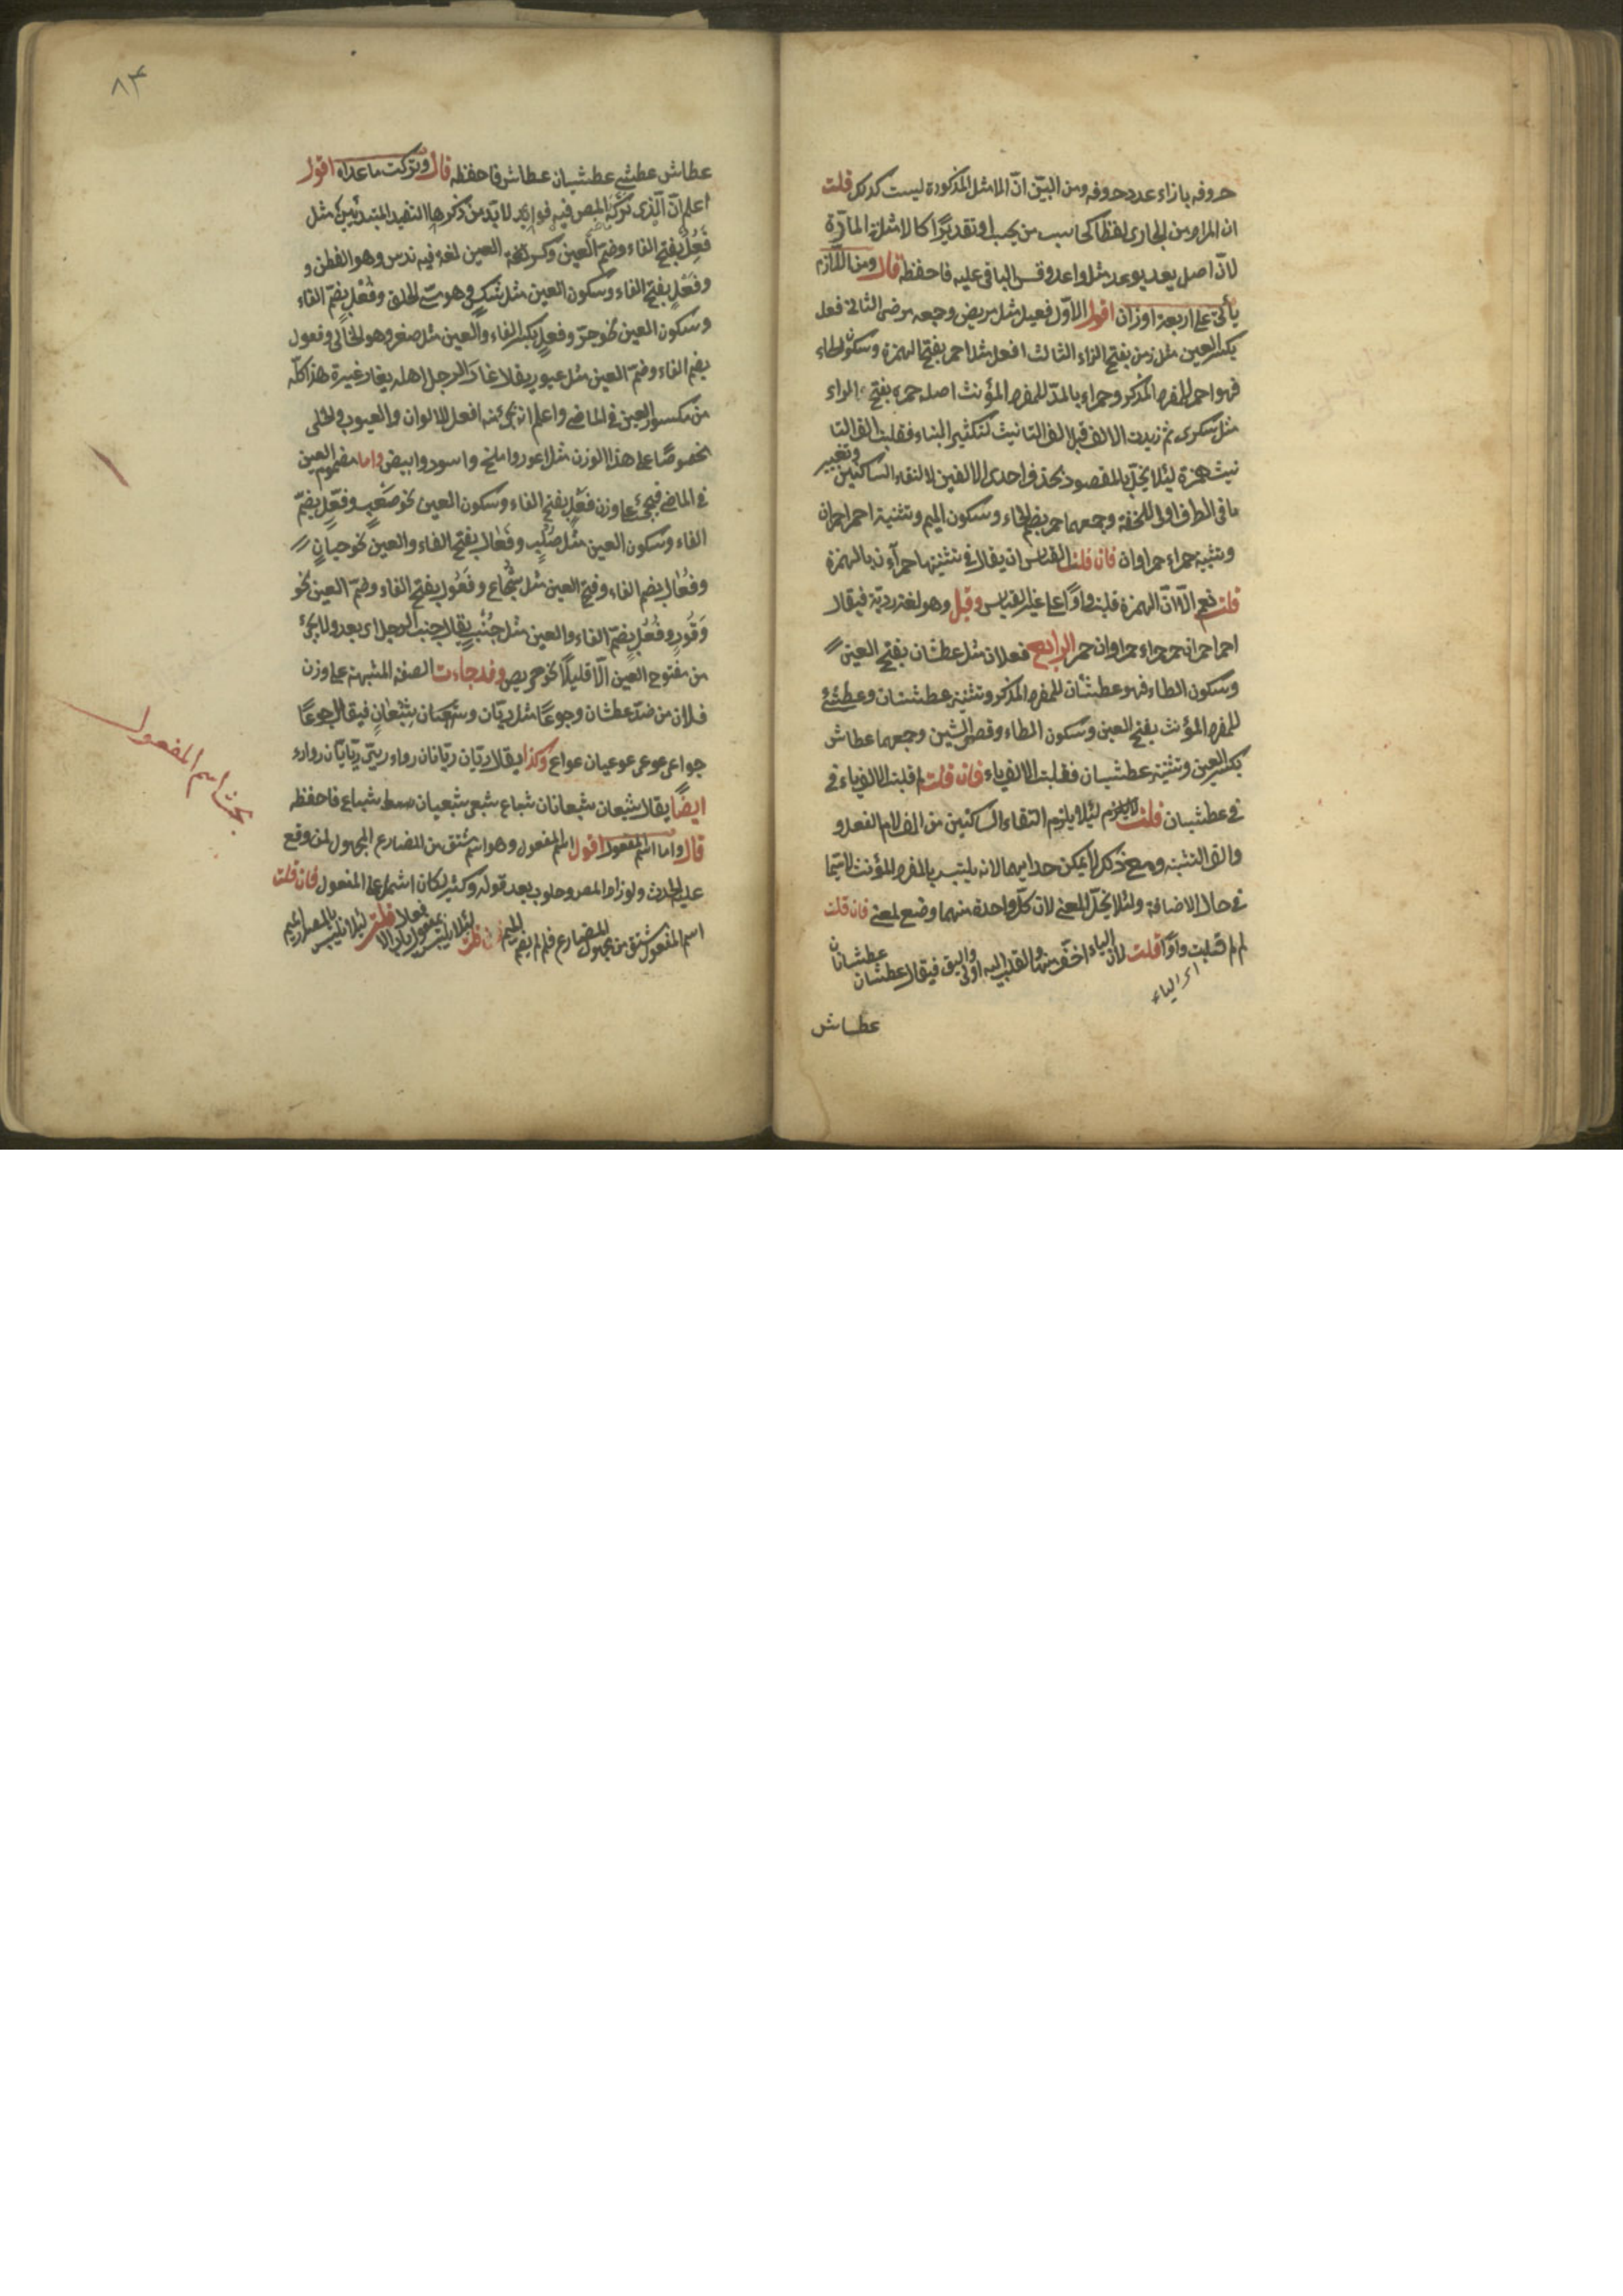 حروفه بازاء عدد حروفه ومن البيّن انّ الامثل المذكورة ليست كذلك قلت
ان المراد من الجارى لفظا كحاسب من يحسب او تقديرًا كالامثلة المارّة
لانّ اصل يعد يوعد مثل واعد وقس الباقى عليه فاحفظه قال ومن اللازم
يأتى على اربعة اوزان اقول الاوّل فعيل مثل مريض وجمعه مرضى الثانى فعل
بكسر العين مثل زمن بفتح الزاء الثالث افعل مثل احمر بفتح الهمزة وسكون الحاء
فهو احمر للمفرد المذكر وحمراء بالمدّ للمفرد المؤنث اصله حمرى بفتح الراء
مثل سكرى ثم زيدت الالف قبل الف التانيث لتكثير البناء فقلبت الف التا
نيث همزة لئلا يخلّ بالمقصود بحذف احدى الالفين لالتقاء الساكنين وتغيير
ما فى الطرف اولى للخفة وجمعهما حمر بضم الحاء وسكون الميم وتثنية احمر احمران
وتثنية حمراء حمراوان فان قلت القياس ان يقال فى تثنيتها حمرآءن بالهمزة
قلت نعم الّا انّ الهمزة قلبت واوًا على غير القياس وقيل وهو لغة رديّة فيقال
احمر احمران حمر حمراء حمراوان حمر الرابع فعلان مثل عطشان بفتح العين
وسكون الطاء فهو عطشان للمفرد المذكر وتثنيته عطشانان وعطشى
للمفرد المؤنث بفتح العين وسكون الطاء وقصر الشين وجمعهما عطاش
بكسر العين وتثنيته عطشيان فقلبت الالف ياء فان قلت لم قلبت الالف ياء فى
فى عطشيان قلت لئلا يلزم التقاء الساكنين من الف لام الفعل و
والف التثنية ومع ذكر لا يمكن حذفهما لانه يلتبس بالمفرد المؤنث لاسيّما
فى حال الاضافة ولئلا يخلّ المعنى لانّ كلّ واحدة منهما وضع لمعنى فان قلت
لم لم تقلب واوًا قلت لان الياء اخفّ منها والقلب اليه اولى واليق فيقال عطشان عطشانان
اى الياء
عطاش
٨٣
عطاش عطشى عطشيان عطاش فاحفظه قال وتركت ما عداه اقول
اعلم انّ الّذى تركه المص فيه فوائد لا بدّ من ذكرها لتفيد المبتدئين مثل
فَعُل بفتح الفاء وضمّ العين وكسر العين لغة فيه ندس وهو الفطن و
وفَعْل بفتح الفاء وسكون العين مثل شكس وهو سىّ الخلق وفُعْل بضمّ الفاء
وسكون العين نحو حرّ وفعل بكسر الفاء والعين مثل صفر وهو الخالى وفعول
بفتح الفاء وضمّ العين مثل غيور يقال غار الرجل اهله يغار غيرة هذا كلّه
من مكسور العين فى الماضى واعلم انه يجئ منه افعل للالوان والعيوب والحلى
مخصوصًا على هذا الوزن مثل اعور واملح واسود وابيض واما مضموم العين
فى الماضى فيجئ على وزن فَعْل بفتح الفاء وسكون العين نحو صَعْب وفُعْل بضمّ
الفاء وسكون العين مثل صُلْب وفَعَال بفتح الفاء والعين نحو جبان
وفُعال بضم الفاء وفتح العين مثل شُجاع وفَعُول بفتح الفاء وضمّ العين نحو
وَقُور وفُعُل بضمّ الفاء والعين مثل جُنُب يقال جنب الرجل اى بعد ولا يجئ
من مفتوح العين الّا قليلًا نحو حريص وقد جاءت الصفة المشبهة على وزن
فعلان من ضدّ عطشان وجوعًا مثل ريّان وشبعان شبعان فيقال جوعًا
جواعى جوعى جوعيان جواع وكذا يقال ريّان ريّانان رواء ريّى ريّيان رواء
ايضًا يقال شبعان شبعانان شباع شبعى شبعيان شباع فاحفظه
قال وامّا اسم المفعول اقول اسم المفعول وهو اسم مشتق من المضارع المجهول لمن وقع
عليه الحدث ولو زاد المص وحلوب بعد قوله وكثير لكان اشمل على المفعول فان قلت
اسم المفعول مشتق من مجهول المضارع فلم لم يضم الميم قلت لئلا يلتبس بمفعول باب الافعال
بحث اسم المفعول